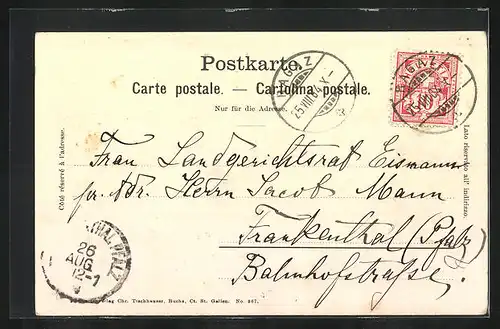 Postkarte.
Carte postale. — Cartolina postale.
Nur für die Adresse.
RAGAZ
25 VIII 04 X-
RAGAZ
25 VIII 04
Côté réservé à l'adresse.
Lato riservato all' indirizzo.
Frau Landgerichtsrat Eismann
pr. Adr. Herrn Jacob Mann
Frankenthal (Pfalz)
Bahnhofstrasse.
26
AUG
12-1
Chr. Tischhauser, Buchs, Ct. St. Gallen. No. 267.